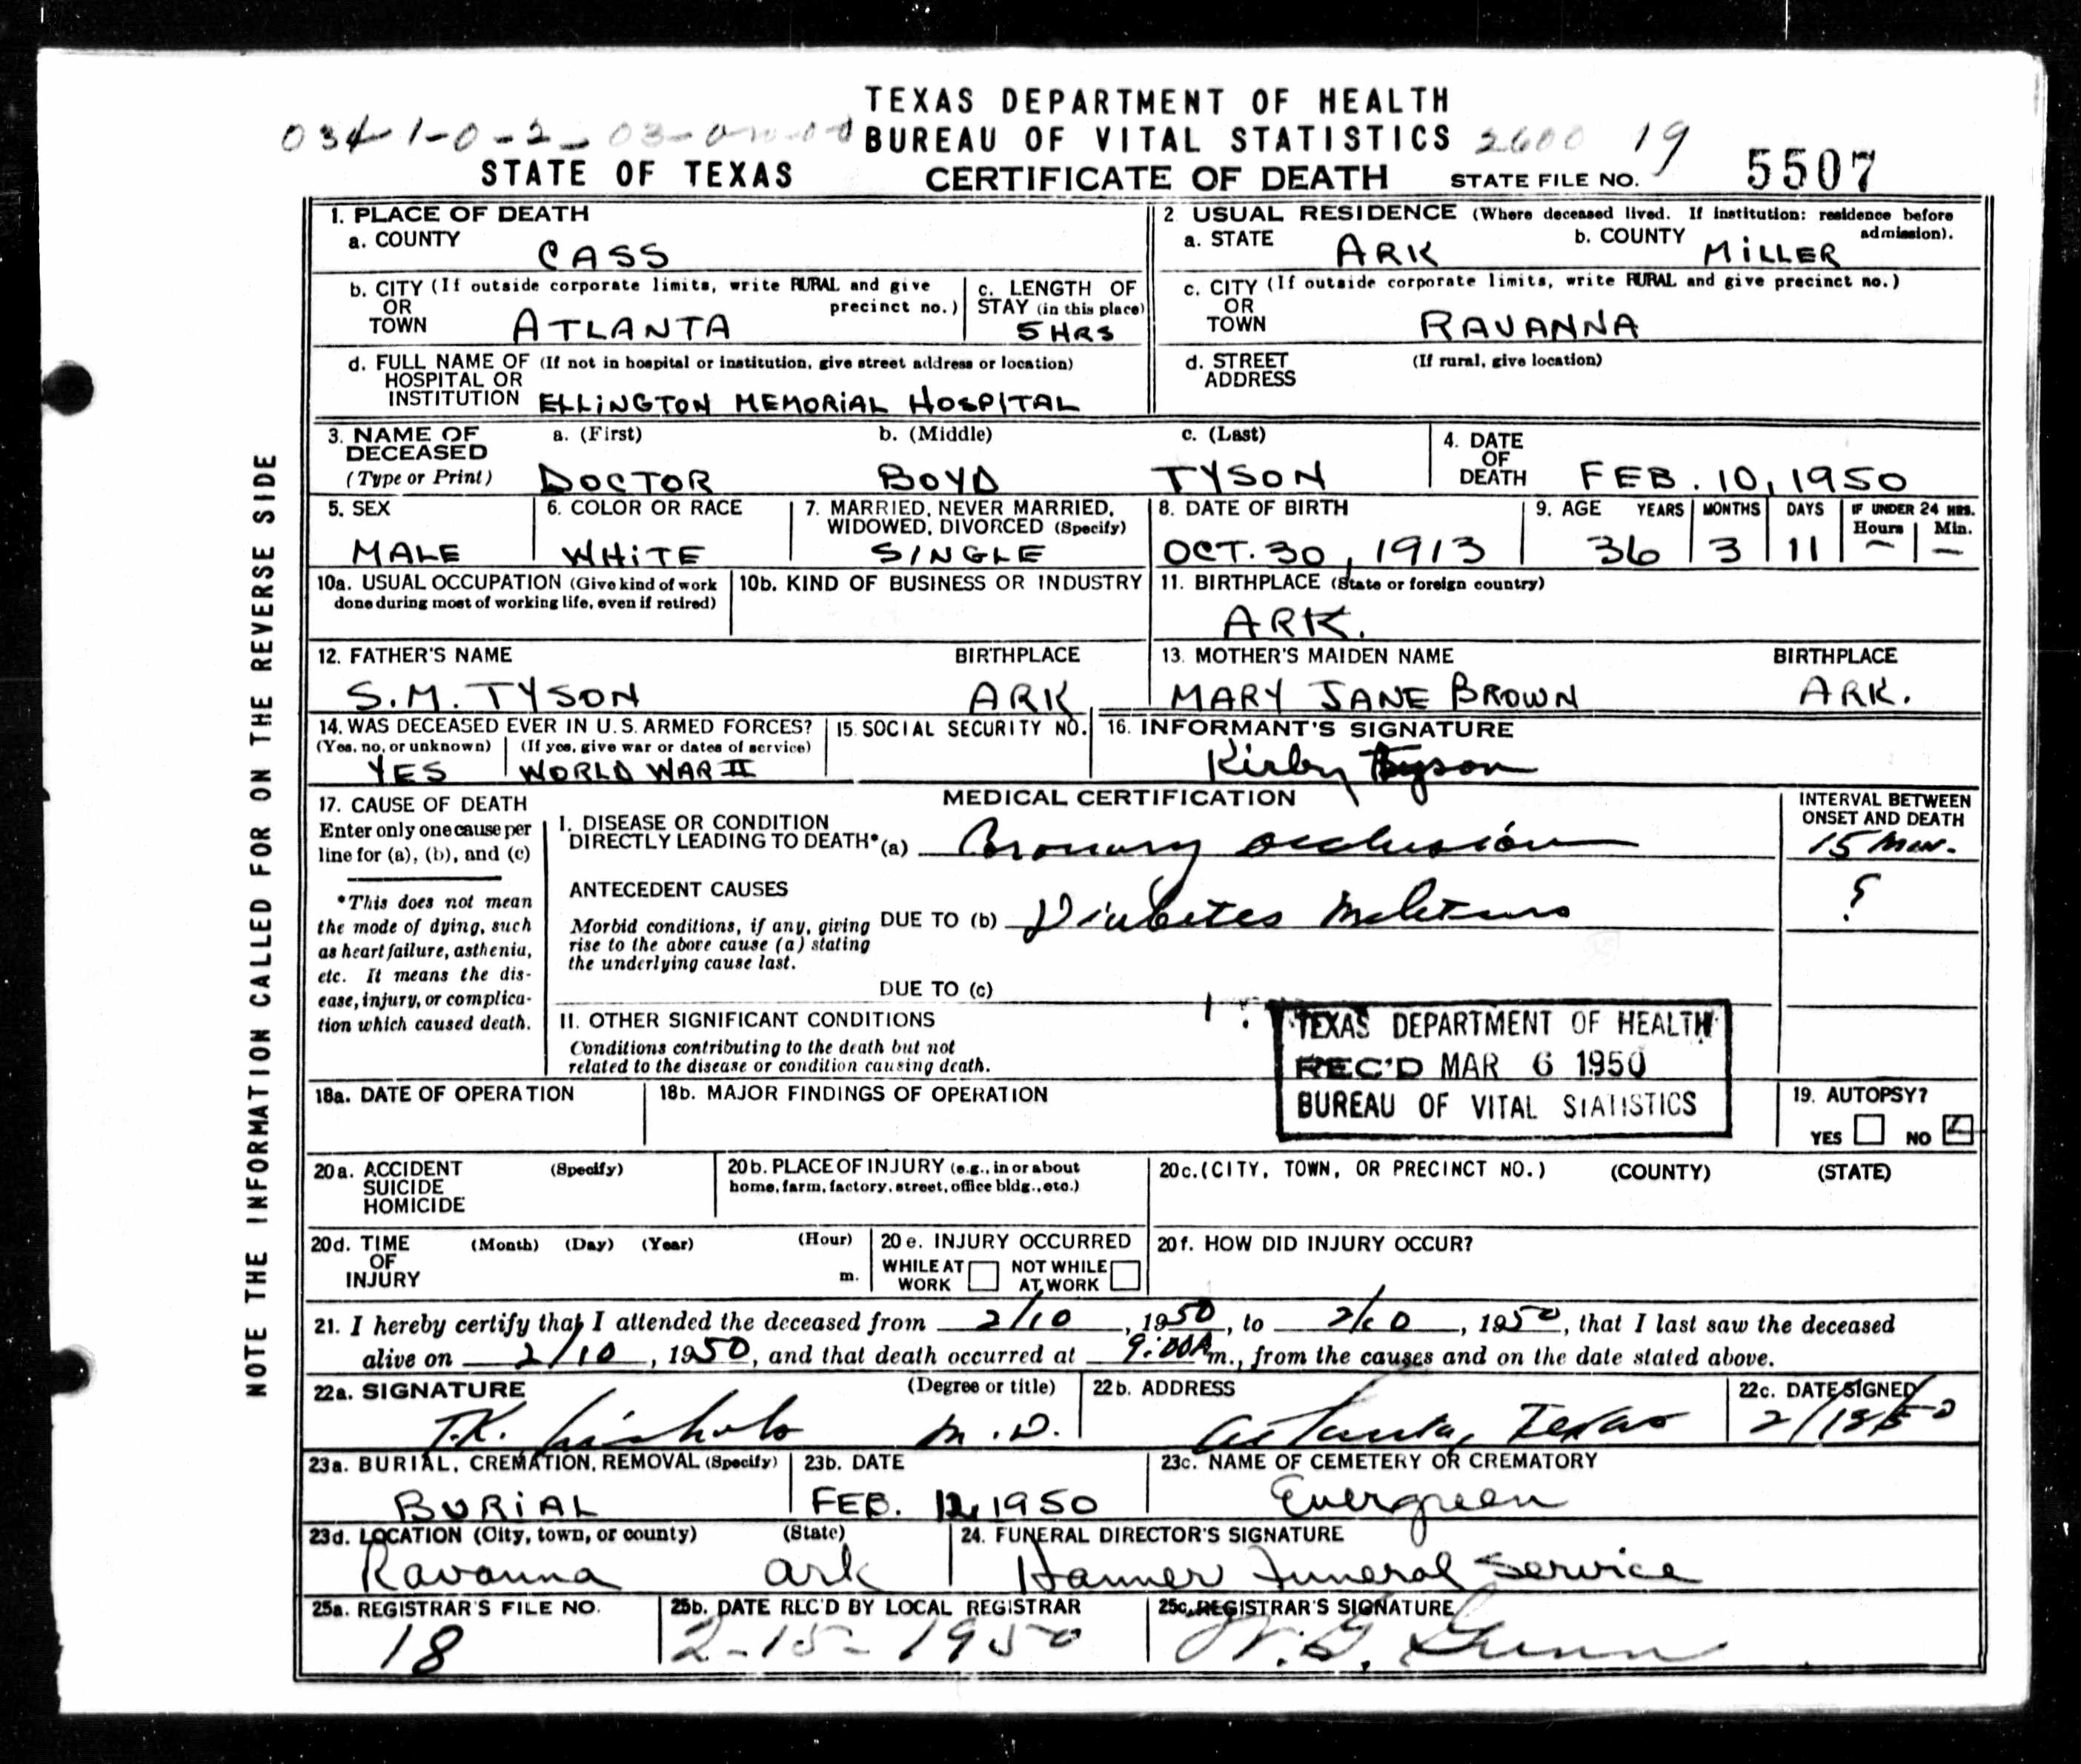 TEXAS DEPARTMENT OF HEALTH
BUREAU OF VITAL STATISTICS 2600 19
STATE OF TEXAS CERTIFICATE OF DEATH STATE FILE NO. 5507
NOTE THE INFORMATION CALLED FOR ON THE REVERSE SIDE
1. PLACE OF DEATH
a. COUNTY CASS
2 USUAL RESIDENCE (Where deceased lived. If institution: residence before admission).
a. STATE ARK b. COUNTY MILLER
b. CITY (If outside corporate limits, write RURAL and give precinct no.)
OR
TOWN ATLANTA
c. LENGTH OF
STAY (in this place)
5 HRS
c. CITY (If outside corporate limits, write RURAL and give precinct no.)
OR
TOWN RAVANNA
d. FULL NAME OF (If not in hospital or institution, give street address or location)
HOSPITAL OR
INSTITUTION ELLINGTON MEMORIAL HOSPITAL
d. STREET (If rural, give location)
ADDRESS
3. NAME OF a. (First) b. (Middle) c. (Last)
DECEASED
(Type or Print) DOCTOR BOYD TYSON
4. DATE
OF
DEATH FEB. 10, 1950
5. SEX
MALE
6. COLOR OR RACE
WHITE
7. MARRIED, NEVER MARRIED,
WIDOWED, DIVORCED (Specify)
SINGLE
8. DATE OF BIRTH
OCT. 30, 1913
9. AGE YEARS MONTHS DAYS IF UNDER 24 HRS.
Hours Min.
36 3 11 – –
10a. USUAL OCCUPATION (Give kind of work
done during most of working life, even if retired)
10b. KIND OF BUSINESS OR INDUSTRY
11. BIRTHPLACE (State or foreign country)
ARK.
12. FATHER'S NAME BIRTHPLACE
S.M. TYSON ARK
13. MOTHER'S MAIDEN NAME BIRTHPLACE
MARY JANE BROWN ARK.
14. WAS DECEASED EVER IN U.S. ARMED FORCES?
(Yes, no, or unknown) (If yes, give war or dates of service)
YES WORLD WAR II
15. SOCIAL SECURITY NO.
16. INFORMANT'S SIGNATURE
Kirby Tyson
17. CAUSE OF DEATH
Enter only one cause per
line for (a), (b), and (c)
*This does not mean
the mode of dying, such
as heart failure, asthenia,
etc. It means the dis-
ease, injury, or complica-
tion which caused death.
MEDICAL CERTIFICATION
INTERVAL BETWEEN
ONSET AND DEATH
I. DISEASE OR CONDITION
DIRECTLY LEADING TO DEATH* (a) Coronary occlusion 15 min.
ANTECEDENT CAUSES
Morbid conditions, if any, giving
rise to the above cause (a) stating
the underlying cause last.
DUE TO (b) Diabetes Melitus ?
DUE TO (c)
II. OTHER SIGNIFICANT CONDITIONS
Conditions contributing to the death but not
related to the disease or condition causing death.
TEXAS DEPARTMENT OF HEALTH
REC'D MAR 6 1950
BUREAU OF VITAL STATISTICS
18a. DATE OF OPERATION
18b. MAJOR FINDINGS OF OPERATION
19. AUTOPSY?
YES NO
20a. ACCIDENT (Specify)
SUICIDE
HOMICIDE
20b. PLACE OF INJURY (e.g., in or about
home, farm, factory, street, office bldg., etc.)
20c. (CITY, TOWN, OR PRECINCT NO.) (COUNTY) (STATE)
20d. TIME (Month) (Day) (Year) (Hour)
OF
INJURY m.
20e. INJURY OCCURRED
WHILE AT WORK NOT WHILE AT WORK
20f. HOW DID INJURY OCCUR?
21. I hereby certify that I attended the deceased from 2/10, 1950, to 2/10, 1950, that I last saw the deceased
alive on 2/10, 1950, and that death occurred at 9:00A m., from the causes and on the date stated above.
22a. SIGNATURE (Degree or title)
T.K. Nichols M.D.
22b. ADDRESS
Atlanta, Texas
22c. DATE SIGNED
23a. BURIAL, CREMATION, REMOVAL (Specify)
BURIAL
23b. DATE
FEB. 12, 1950
23c. NAME OF CEMETERY OR CREMATORY
Evergreen
23d. LOCATION (City, town, or county) (State)
Ravanna Ark
24. FUNERAL DIRECTOR'S SIGNATURE
Hanner Funeral Service
25a. REGISTRAR'S FILE NO.
18
25b. DATE REC'D BY LOCAL REGISTRAR
2-15-1950
25c. REGISTRAR'S SIGNATURE